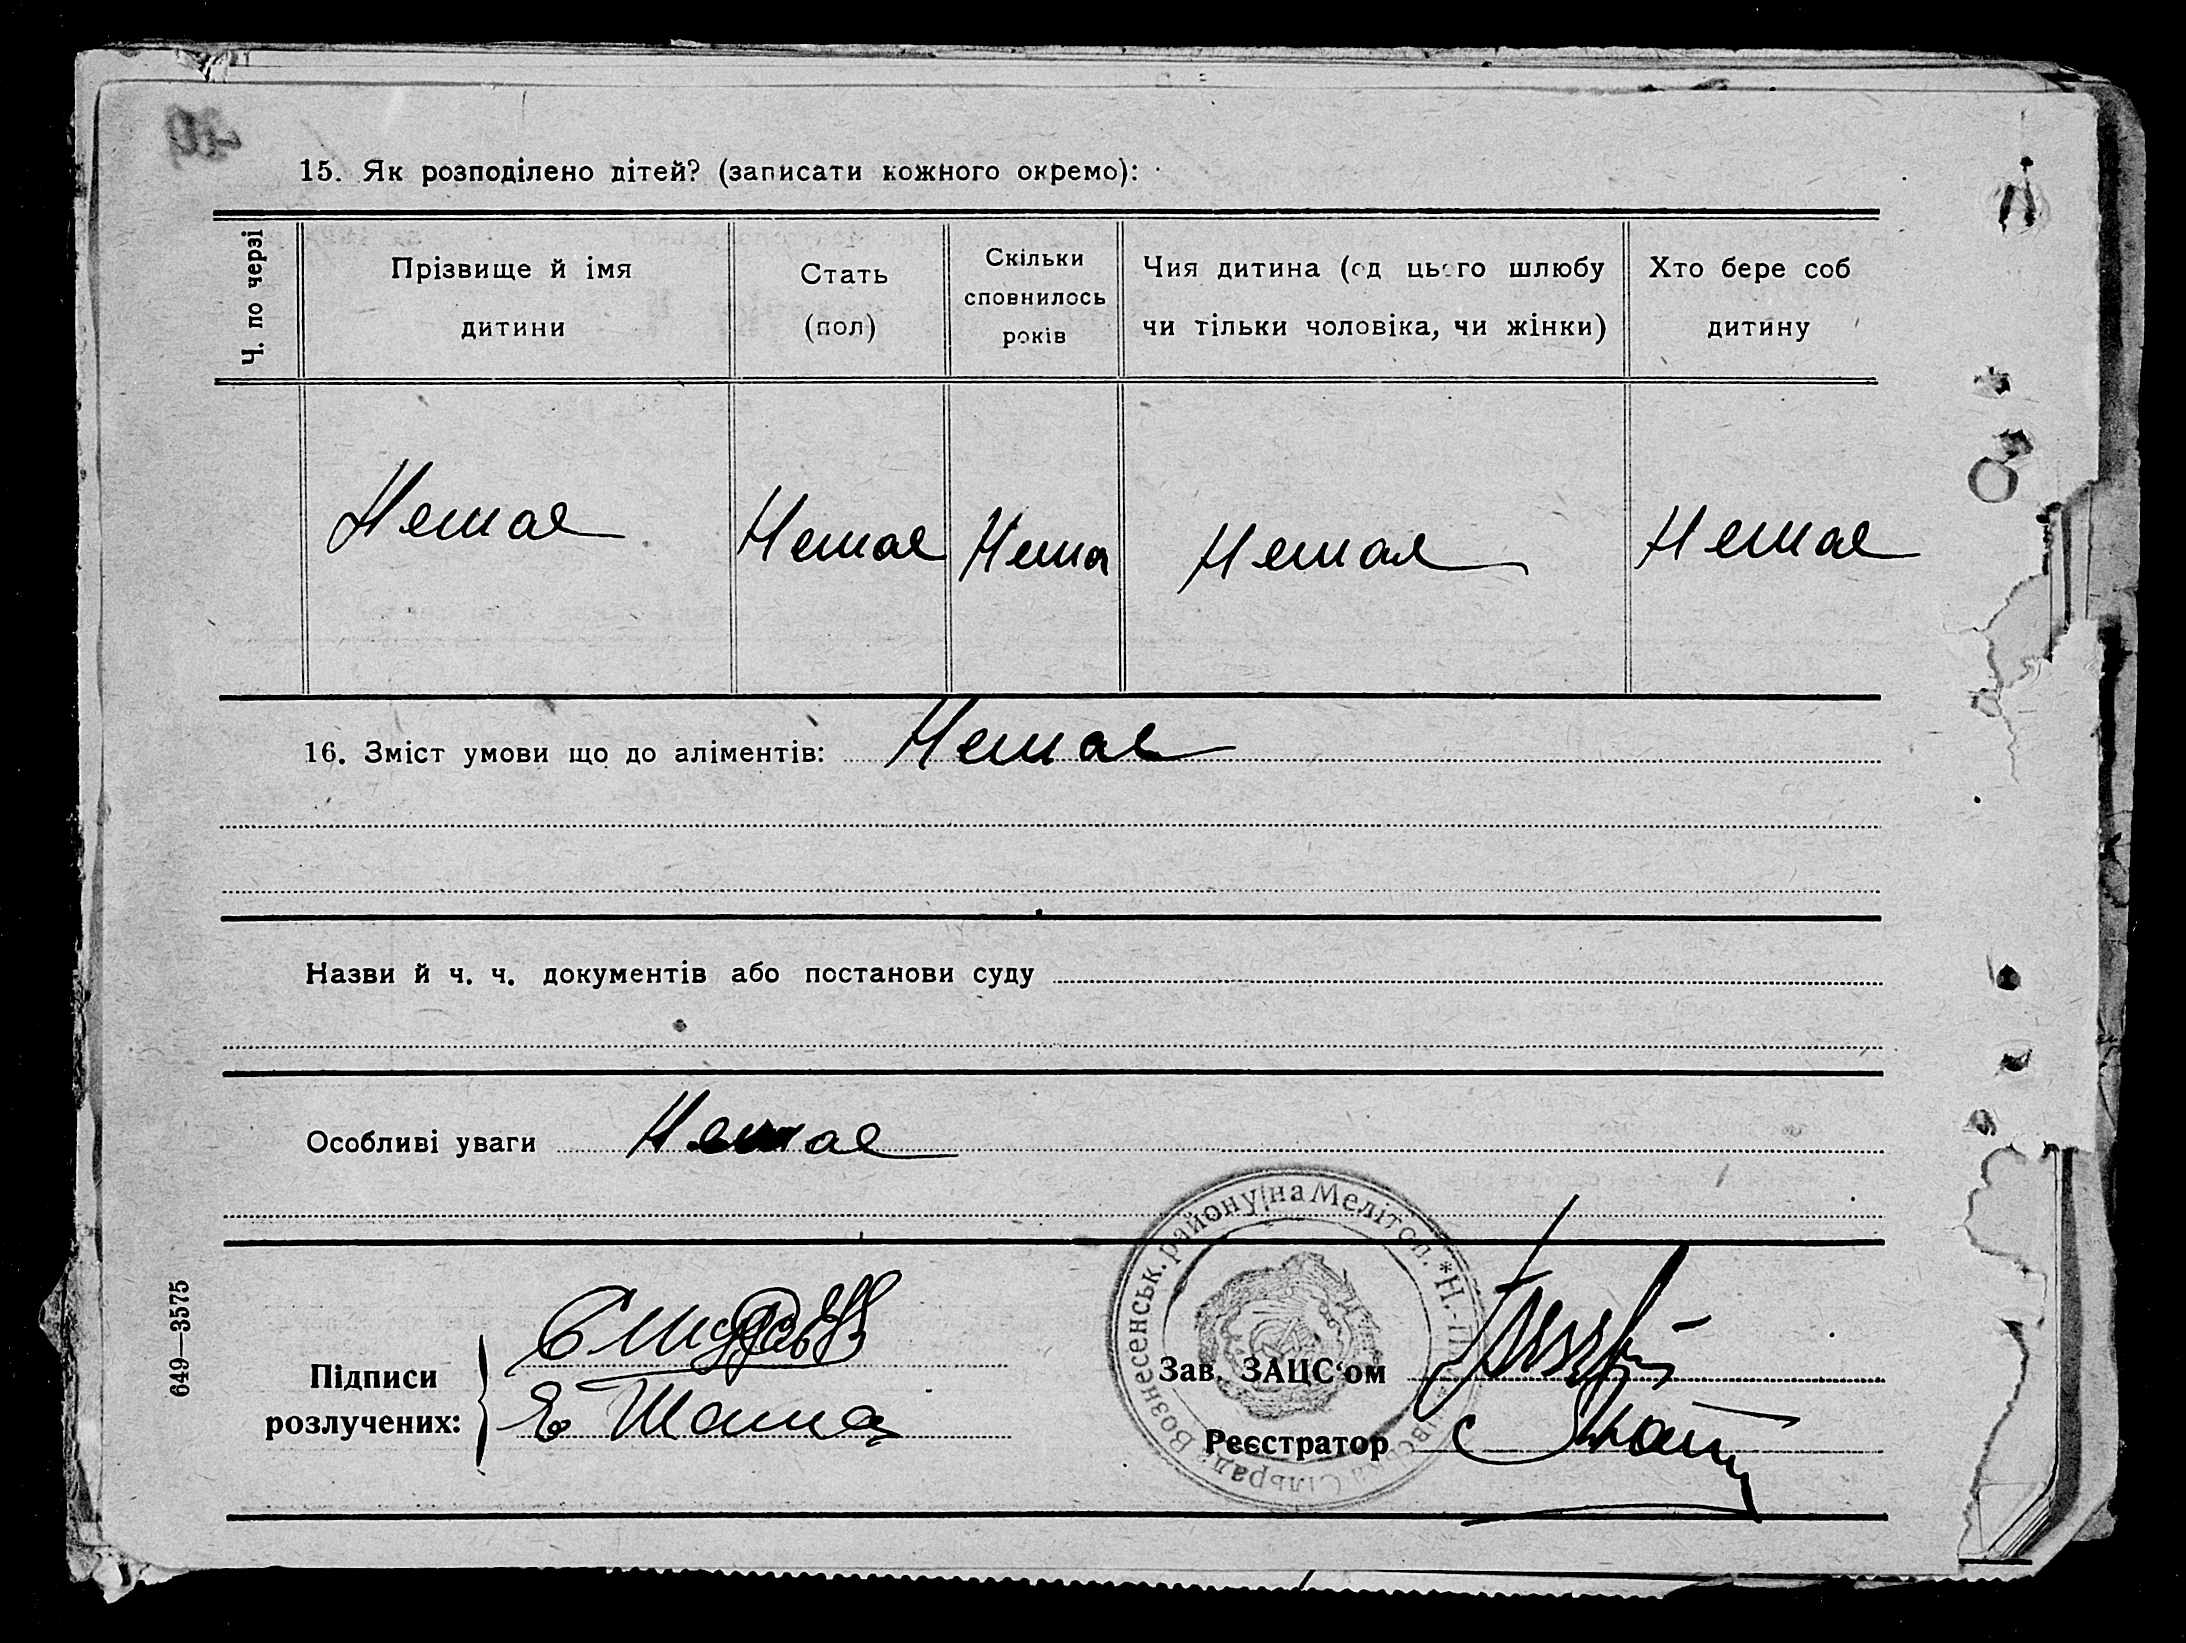 15. Як розподілено дітей? (записати кожного окремо):
Ч. по черзі
Прізвище й імя дитини
Стать (пол)
Скільки сповнилось років
Чия дитина (од цього шлюбу чи тільки чоловіка, чи жінки)
Хто бере соб дитину
Немає
Немає
Нема
Немає
Немає
16. Зміст умови що до аліментів: Немає
Назви й ч. ч. документів або постанови суду
Особливі уваги Немає
Вознесенськ. району на Мелітоп. * Н.-
Сільрада
Підписи
розлучених:
Зав. ЗАЦС‘ом
Реєстратор
649—3575